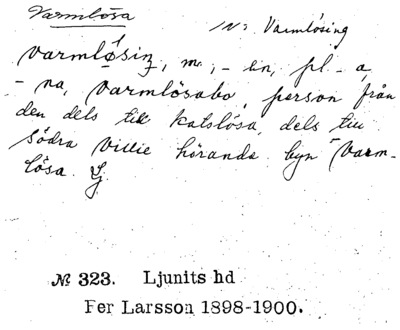 Varmlösa
IN: Varmlösing
varmløsiŋ, m., -en, pl -a,
-na, varmlösabo, person från
den dels till Katslösa, dels till
Södra Villie hörande byn Varm-
lösa. Lj.
№ 323. Ljunits hd
Per Larsson 1898-1900.